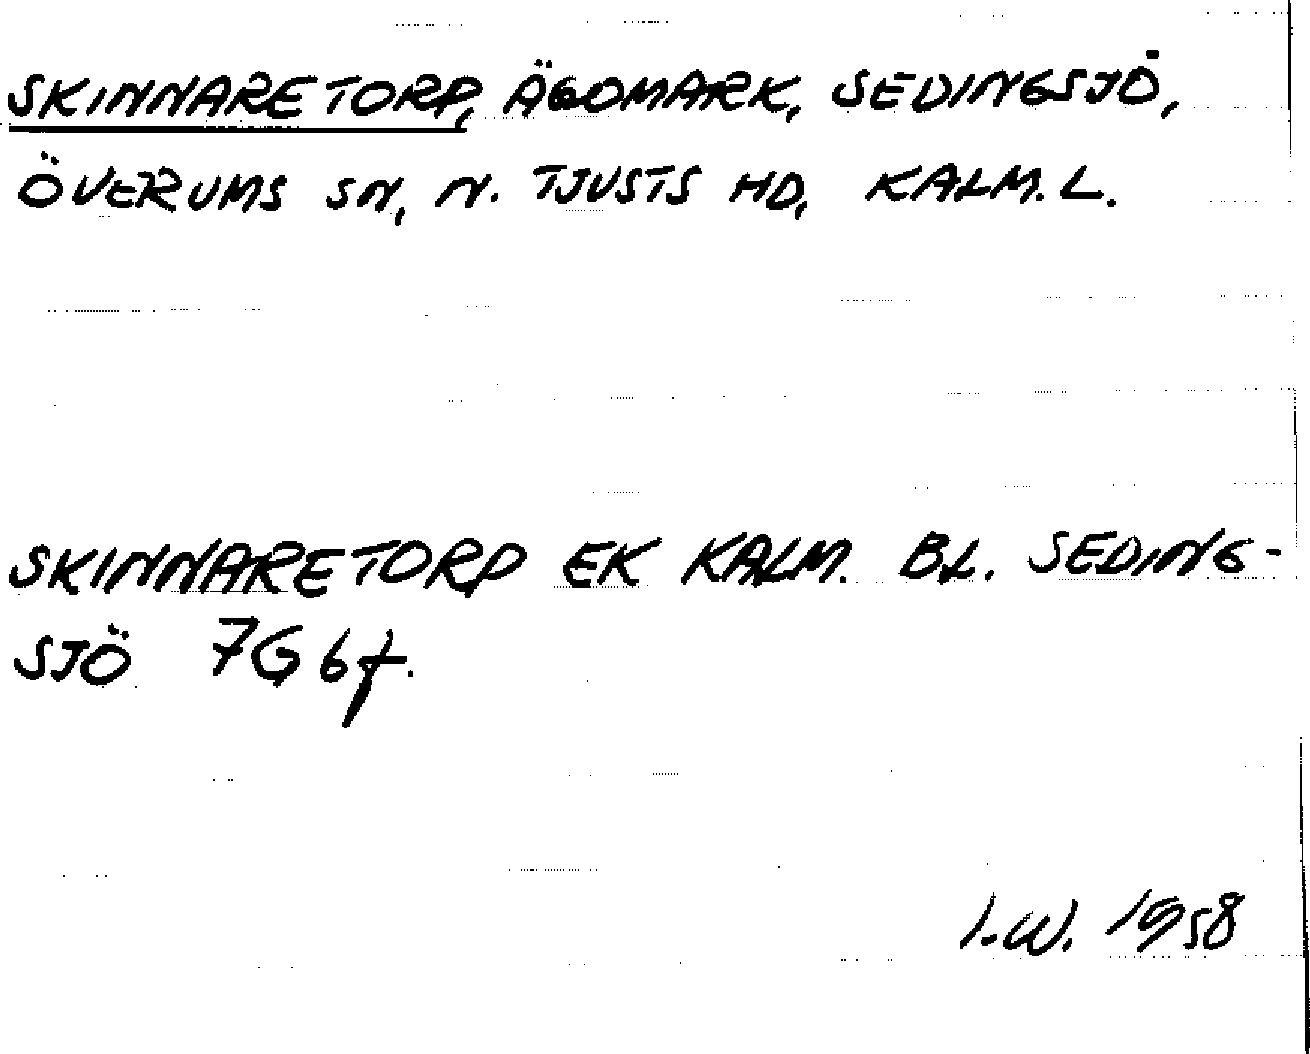 SKINNARETORP, ÄGOMARK, SEDINGSJÖ,
ÖVERUMS SN, N. TJUSTS HD, KALM. L.
SKINNARETORP EK KALM. BL. SEDING-
SJÖ 7G6f.
I.W. 1958